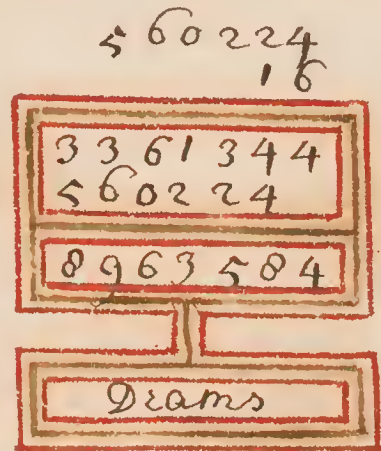 560224
16
3361344
560224
8963584
Drams